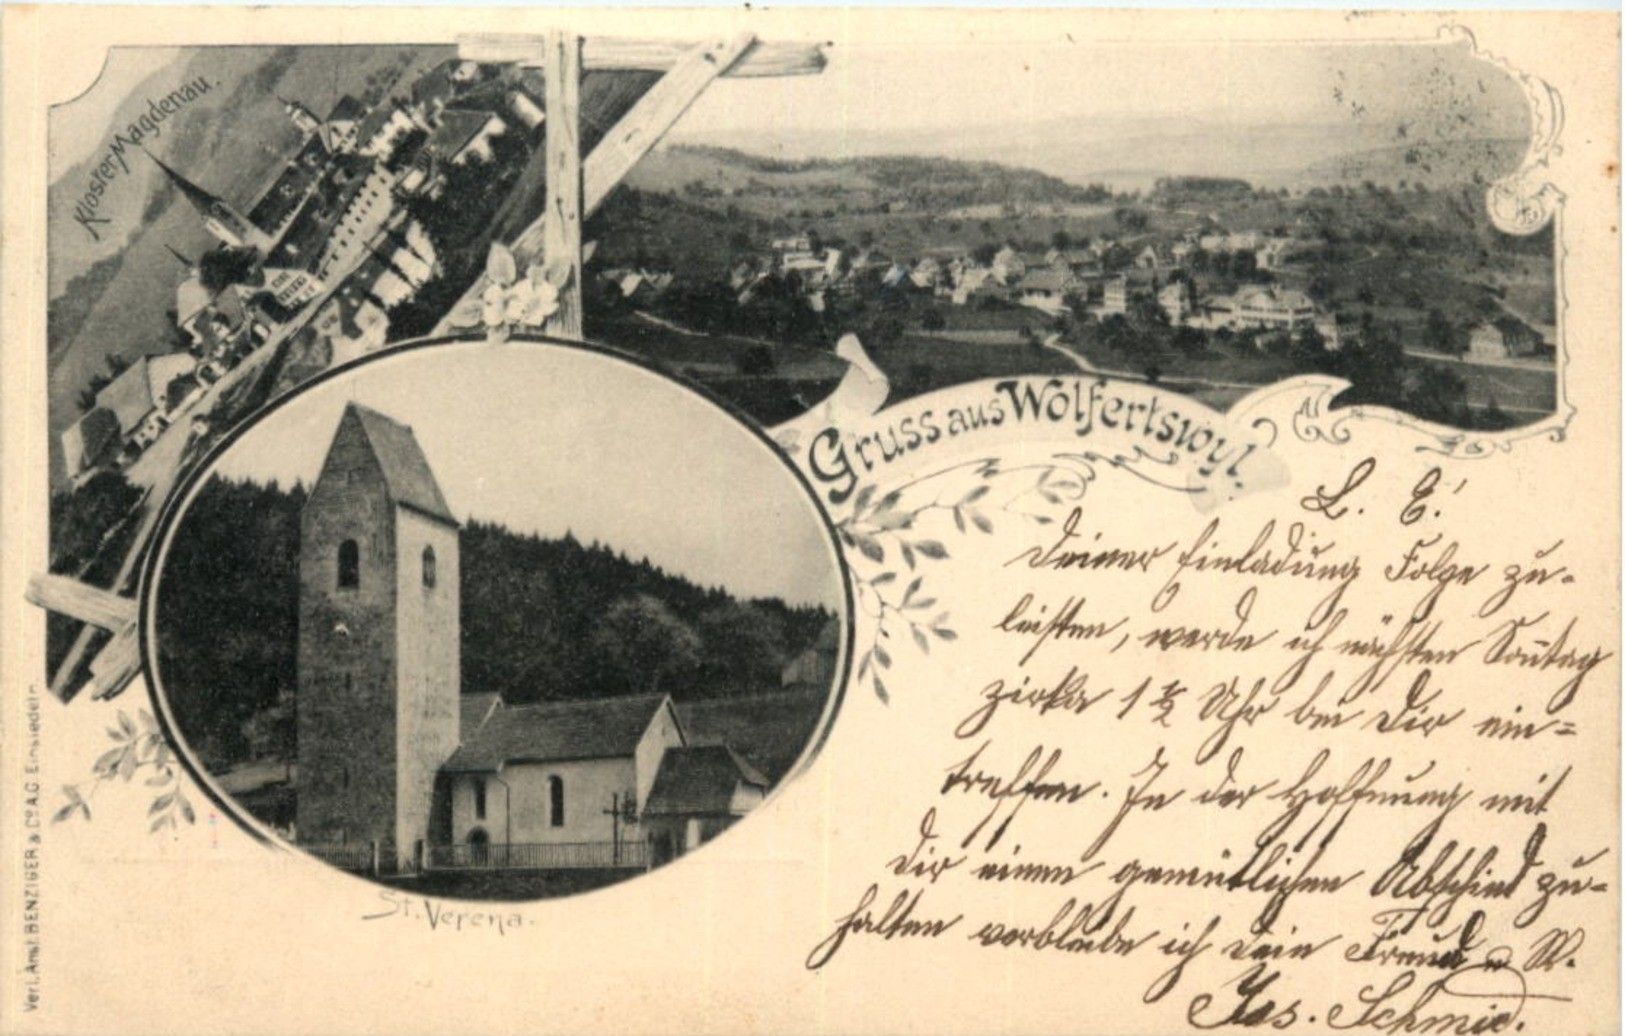 Kloster Magdenau.
Gruss aus Wolfertswyl.
St. Verena.
Verl. Anst. BENZIGER & Co A.G. Einsiedeln
L. E!
Deiner Einladung Folge zu-
leisten, werde ich nächsten Sonntag
zirka 1 ½ Uhr bei Dir ein=
treffen. In der Hoffnung mit
Dir einen gemütlichen Abschied zu-
halten verbleibe ich Dein Freund
Jos. Schmid.